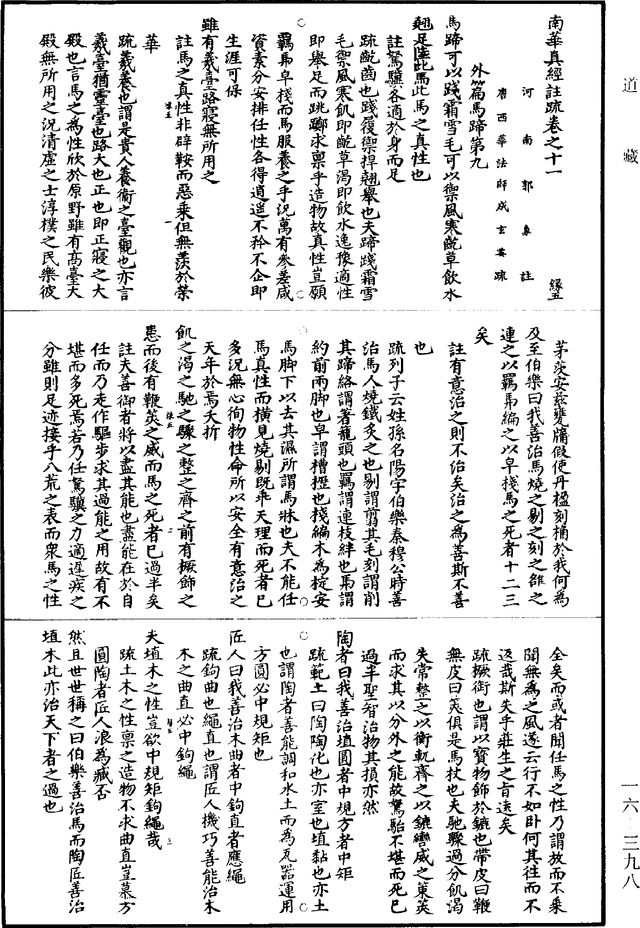 道藏
南華真經註疏卷之十一　緣五
河南郭象註
唐西華法師成玄英疏
外篇馬蹄第九
馬蹄可以踐霜雪毛可以禦風寒齕草飲水
翹足而陸此馬之真性也
註駑驥各適於身而足
疏齕齒也踐履禦捍翹舉也夫蹄踐霜雪
毛禦風寒飢即齕草渴即飲水逸豫適性
即舉足而跳躑求稟乎造物故真性豈願
羈馽皁棧而馬服養之乎況萬有參差咸
資素分安排任性各得逍遥不矜不企即
生涯可保
雖有羲臺路寢無所用之
註馬之真性非辭鞍而惡乘但無羨於榮
華
疏羲養也謂是貴人養衛之臺觀也亦言
羲臺猶靈臺也路大也正也即正寢之大
殿也言馬之為性欣於原野雖有高臺大
殿無所用之況清虛之士淳樸之民樂彼
茅茨安茲甕牖假使丹楹刻桷於我何為
及至伯樂曰我善治馬燒之剔之刻之雒之
連之以羈馽編之以皁棧馬之死者十二三
矣
註有意治之則不治矣治之為善斯不善
也
疏列子云姓孫名陽字伯樂秦穆公時善
治馬人燒鐵炙之也剔謂翦其毛刻謂削
其蹄絡謂著籠頭也羈謂連枝絆也馬謂
約前兩脚也皁謂槽櫪也棧編木為椗安
馬脚下以去其濕所謂馬牀也夫不能任
馬真性而橫見燒剔既乖天理而死者已
多況無心徇物性命所以安全有意治之
天年於焉夭折
飢之渴之馳之驟之整之齊之前有橛飾之
患而後有鞭筴之威而馬之死者已過半矣
註夫善御者將以盡其能也盡能在於自
任而乃走作驅步求其過能之用故有不
堪而多死焉若乃任駑驥之力適遲疾之
分雖則足迹接乎八荒之表而衆馬之性
全矣而或者聞任馬之性乃謂放而不乘
聞無為之風遂云行不如卧何其往而不
返哉斯失乎莊生之旨遠矣
疏橛銜也謂以寶物飾於鑣也帶皮曰鞭
無皮曰筴俱是馬杖也夫馳驟過分飢渴
失常整之以衡軏齊之以鑣轡威之策筴
而求其以分外之能故駑駘不堪而死已
過半聖智治物其損亦然
陶者曰我善治埴圓者中規方者中矩
疏範土曰陶陶化也亦室也埴黏也亦土
也謂陶者善能調和水土而為瓦器運用
方圓必中規矩也
匠人曰我善治木曲者中鉤直者應繩
疏鉤曲也繩直也謂匠人機巧善能治木
木之曲直必中鉤繩
夫埴木之性豈欲中規矩鉤繩哉
疏土木之性稟之造物不求曲直豈慕方
圓陶者匠人浪為臧否
然且世世稱之曰伯樂善治馬而陶匠善治
埴木此亦治天下者之過也
一六－三九八